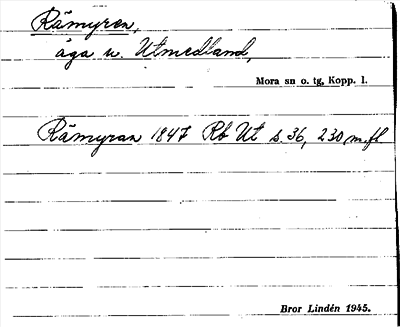 Råmyren,
äga u. Utmedland,
Mora sn o. tg, Kopp. l.
Råmyran 1847 Rb Ut s. 36, 230 m.fl.
Bror Lindén 1945.